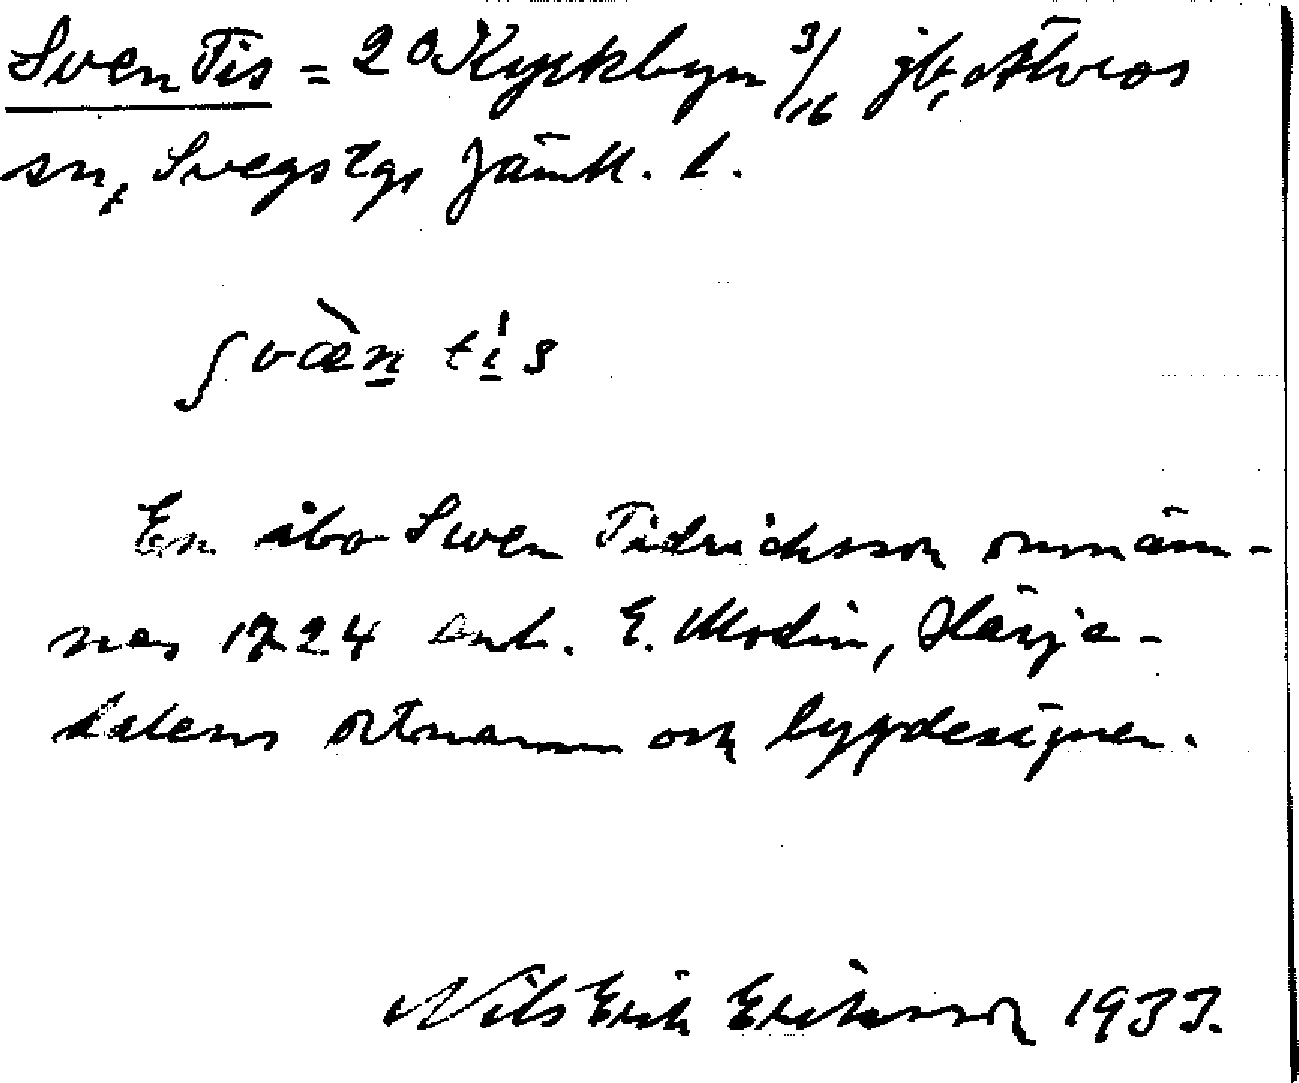 Sven Tis = 2^a Kyrkbyn 3/16 jb, Älvros
sn, Svegs tgs Jämtl. l.
ʃvæ̀n tís
En åbo Swen Tidrichsson omnäm-
nes 1724 enl. E. Modin, Härje-
dalens ortnamn och bygdesägner.
Nils Erik Eriksson 1933.